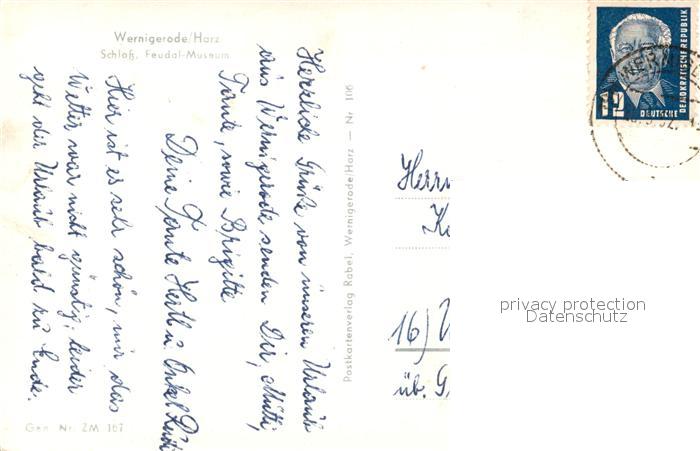 Wernigerode/Harz
Schloß, Feudal-Museum
Herzliche Grüße von unserem Urlaub
aus Wernigerode senden Dir, Mutti,
Tante, sowie Brigitte
Deine Tante Hertl u. Onkel Rudi
Hier ist es sehr schön, nur das
Wetter war nicht günstig, leider
geht der Urlaub bald zu Ende.
Gen. Nr. ZM 167
Postkartenverlag Rabel, Wernigerode/Harz — Nr. 1106
Herrn
16)
üb. G
DEUTSCHE
DEMOKRATISCHE REPUBLIK
12
WERN
privacy protection
Datenschutz